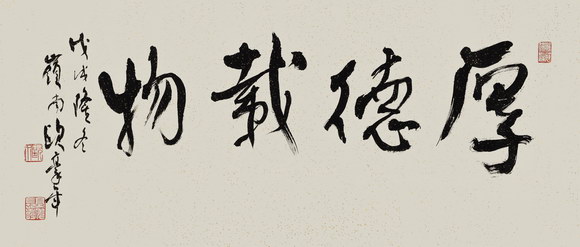 厚德載物
戊戌隆冬
嶺南歐豪年